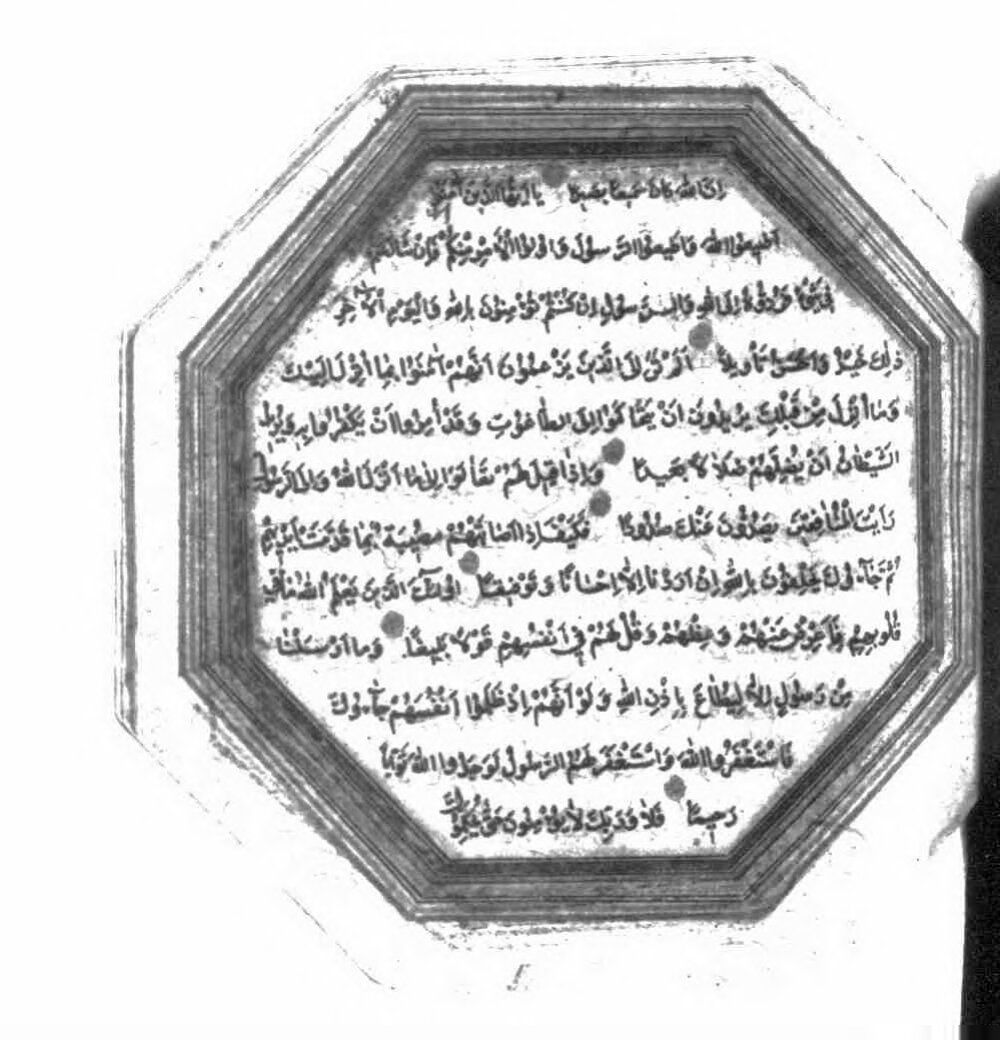 إِنَّ اللهَ كَانَ سَمِيعًا بَصِيرًا يَا أَيُّهَا الَّذِينَ آمَنُوا
أَطِيعُوا اللهَ وَأَطِيعُوا الرَّسُولَ وَأُولِي الْأَمْرِ مِنْكُمْ فَإِنْ تَنَازَعْتُمْ
فِي شَيْءٍ فَرُدُّوهُ إِلَى اللهِ وَالرَّسُولِ إِنْ كُنْتُمْ تُؤْمِنُونَ بِاللهِ وَالْيَوْمِ الْآخِرِ
ذَلِكَ خَيْرٌ وَأَحْسَنُ تَأْوِيلًا أَلَمْ تَرَ إِلَى الَّذِينَ يَزْعُمُونَ أَنَّهُمْ آمَنُوا بِمَا أُنْزِلَ إِلَيْكَ
وَمَا أُنْزِلَ مِنْ قَبْلِكَ يُرِيدُونَ أَنْ يَتَحَاكَمُوا إِلَى الطَّاغُوتِ وَقَدْ أُمِرُوا أَنْ يَكْفُرُوا بِهِ وَيُرِيدُ
الشَّيْطَانُ أَنْ يُضِلَّهُمْ ضَلَالًا بَعِيدًا وَإِذَا قِيلَ لَهُمْ تَعَالَوْا إِلَى مَا أَنْزَلَ اللهُ وَإِلَى الرَّسُولِ
رَأَيْتَ الْمُنَافِقِينَ يَصُدُّونَ عَنْكَ صُدُودًا فَكَيْفَ إِذَا أَصَابَتْهُمْ مُصِيبَةٌ بِمَا قَدَّمَتْ أَيْدِيهِمْ
ثُمَّ جَاءُوكَ يَحْلِفُونَ بِاللهِ إِنْ أَرَدْنَا إِلَّا إِحْسَانًا وَتَوْفِيقًا أُولَئِكَ الَّذِينَ يَعْلَمُ اللهُ مَا فِي
قُلُوبِهِمْ فَأَعْرِضْ عَنْهُمْ وَعِظْهُمْ وَقُلْ لَهُمْ فِي أَنْفُسِهِمْ قَوْلًا بَلِيغًا وَمَا أَرْسَلْنَا
مِنْ رَسُولٍ إِلَّا لِيُطَاعَ بِإِذْنِ اللهِ وَلَوْ أَنَّهُمْ إِذْ ظَلَمُوا أَنْفُسَهُمْ جَاءُوكَ
فَاسْتَغْفَرُوا اللهَ وَاسْتَغْفَرَ لَهُمُ الرَّسُولُ لَوَجَدُوا اللهَ تَوَّابًا
رَحِيمًا فَلَا وَرَبِّكَ لَا يُؤْمِنُونَ حَتَّى يُحَكِّمُوكَ